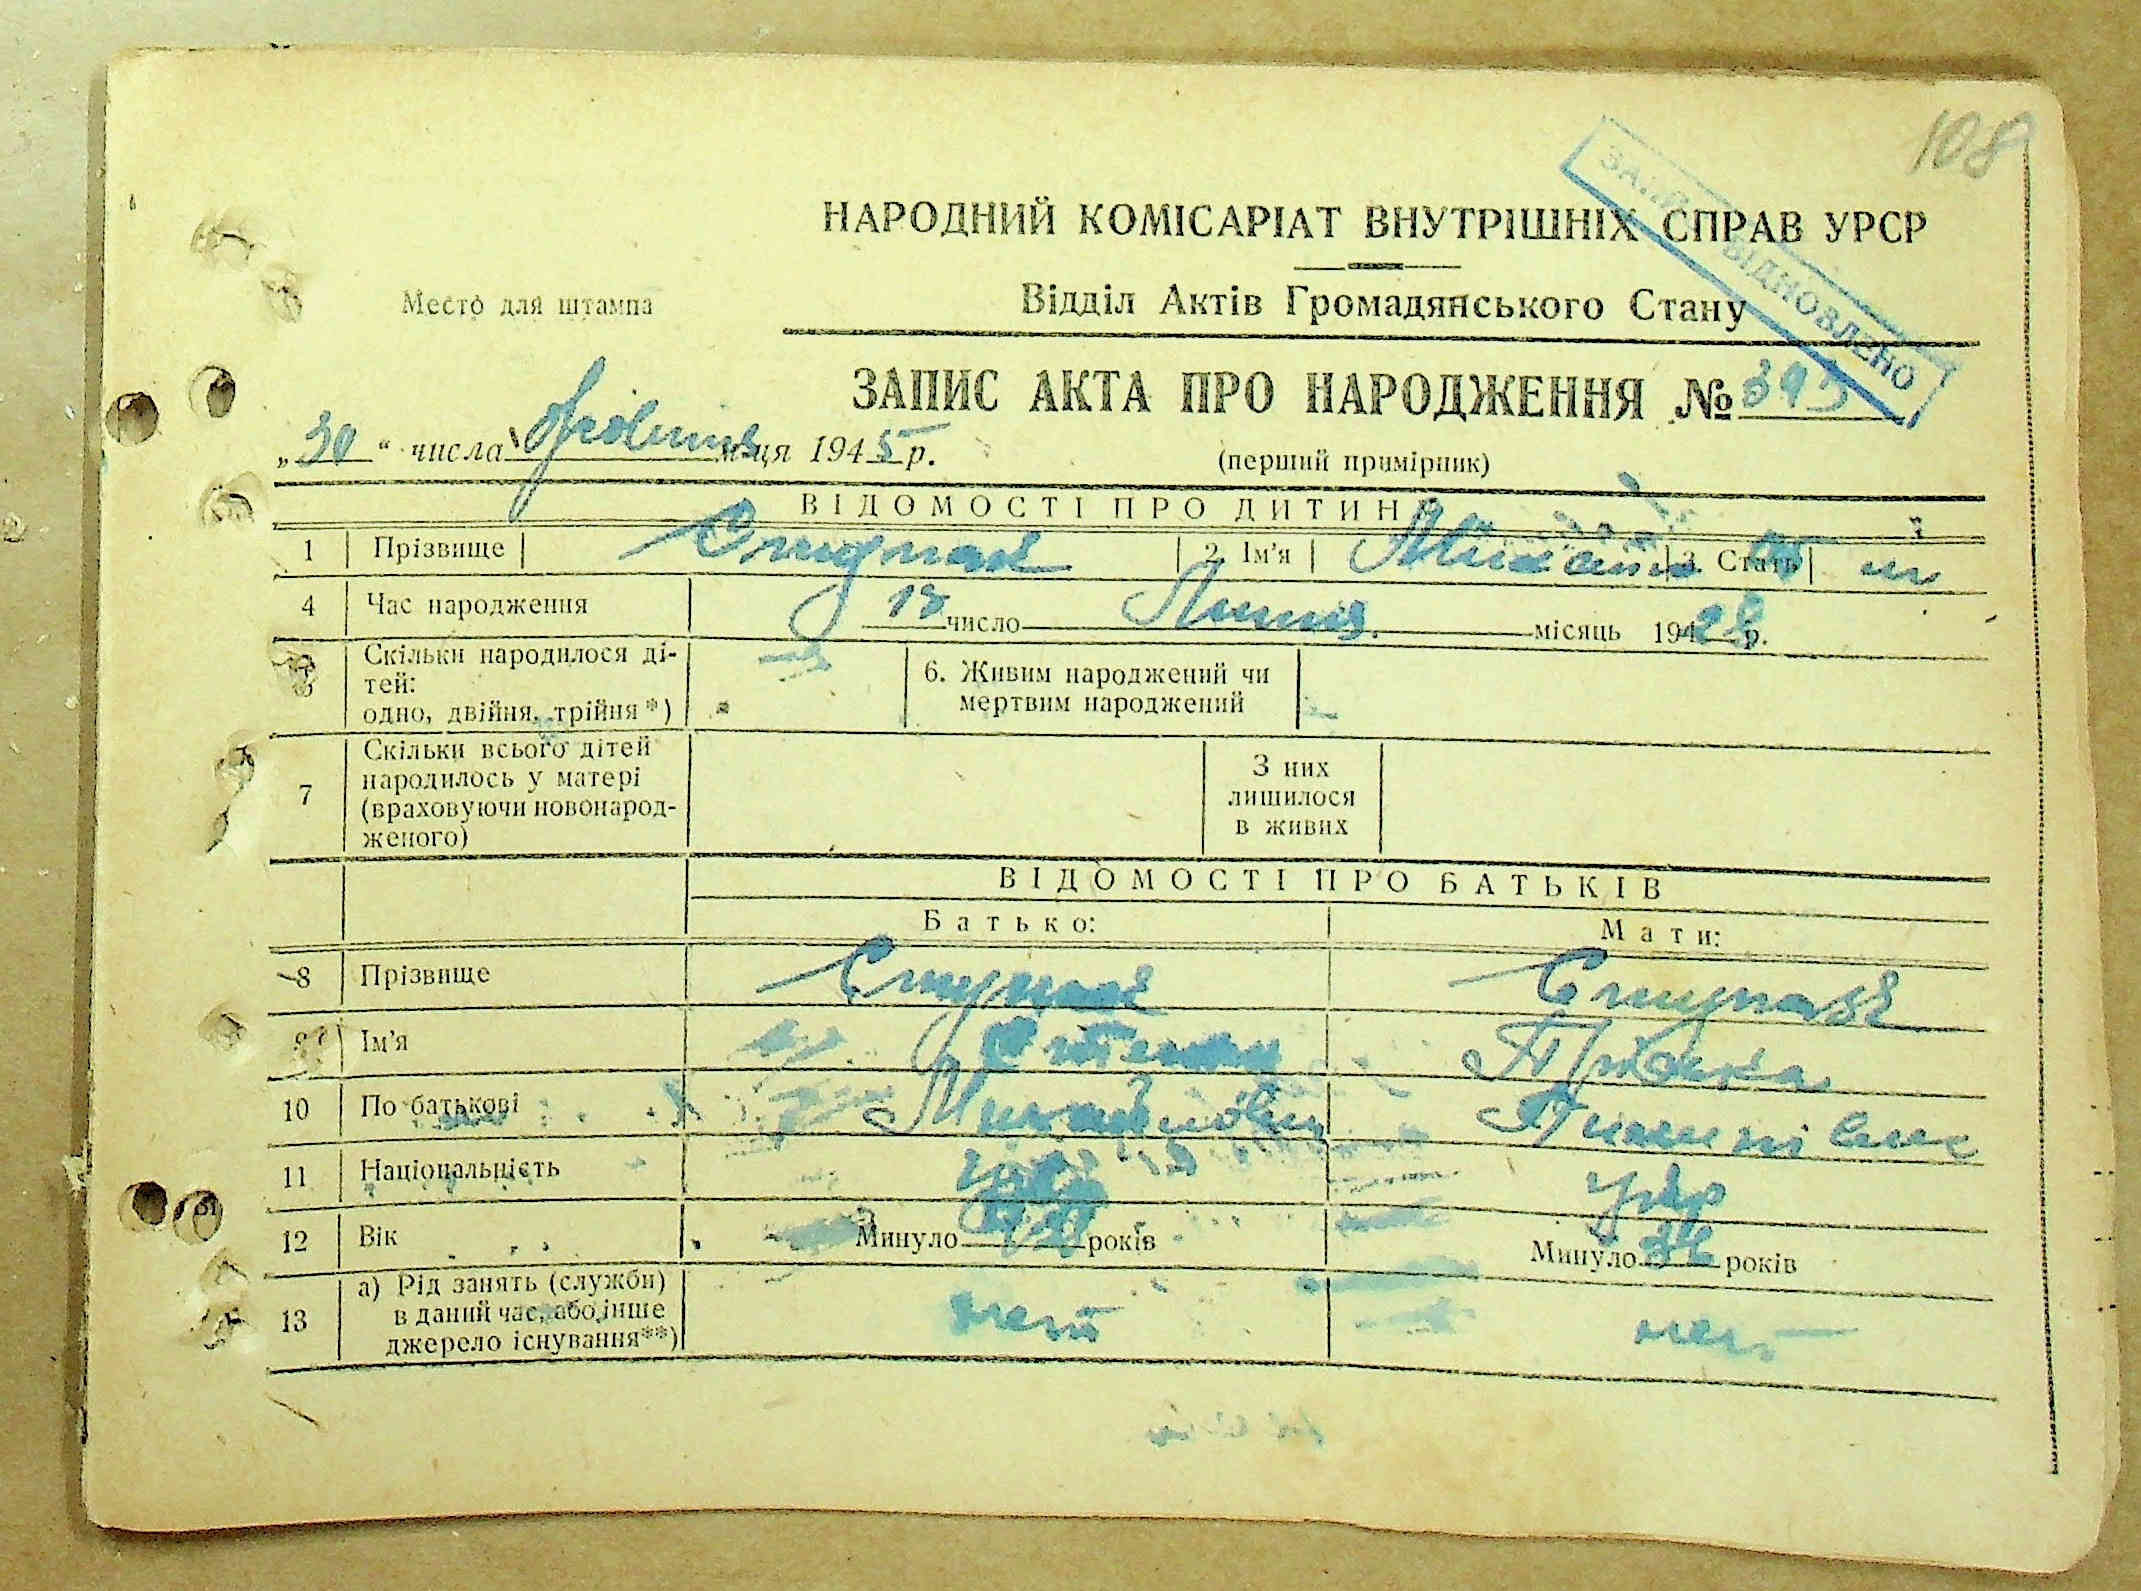 108
НАРОДНИЙ КОМІСАРІАТ ВНУТРІШНІХ СПРАВ УРСР
ВІДНОВЛЕНО
Место для штампа
Відділ Актів Громадянського Стану
ЗАПИС АКТА ПРО НАРОДЖЕННЯ № 393
„30“ числа м-ця 1945 р.
(перший примірник)
ВІДОМОСТІ ПРО ДИТИНУ
1 Прізвище Ступак 2. Ім'я 3. Стать
4 Час народження 13 число Липня місяць 1928 р.
5 Скільки народилося ді-
тей:
одно, двійня, трійня *)
6. Живим народжений чи
мертвим народжений
7 Скільки всього дітей
народилось у матері
(враховуючи новонарод-
женого)
З них
лишилося
в живих
ВІДОМОСТІ ПРО БАТЬКІВ
Батько: Мати:
8 Прізвище Ступак Ступак
9 Ім'я Степан
10 По батькові Михайлович
11 Національність укр укр
12 Вік Минуло років Минуло років
13 а) Рід занять (служби)
в даний час, або інше
джерело існування**)
нет нет